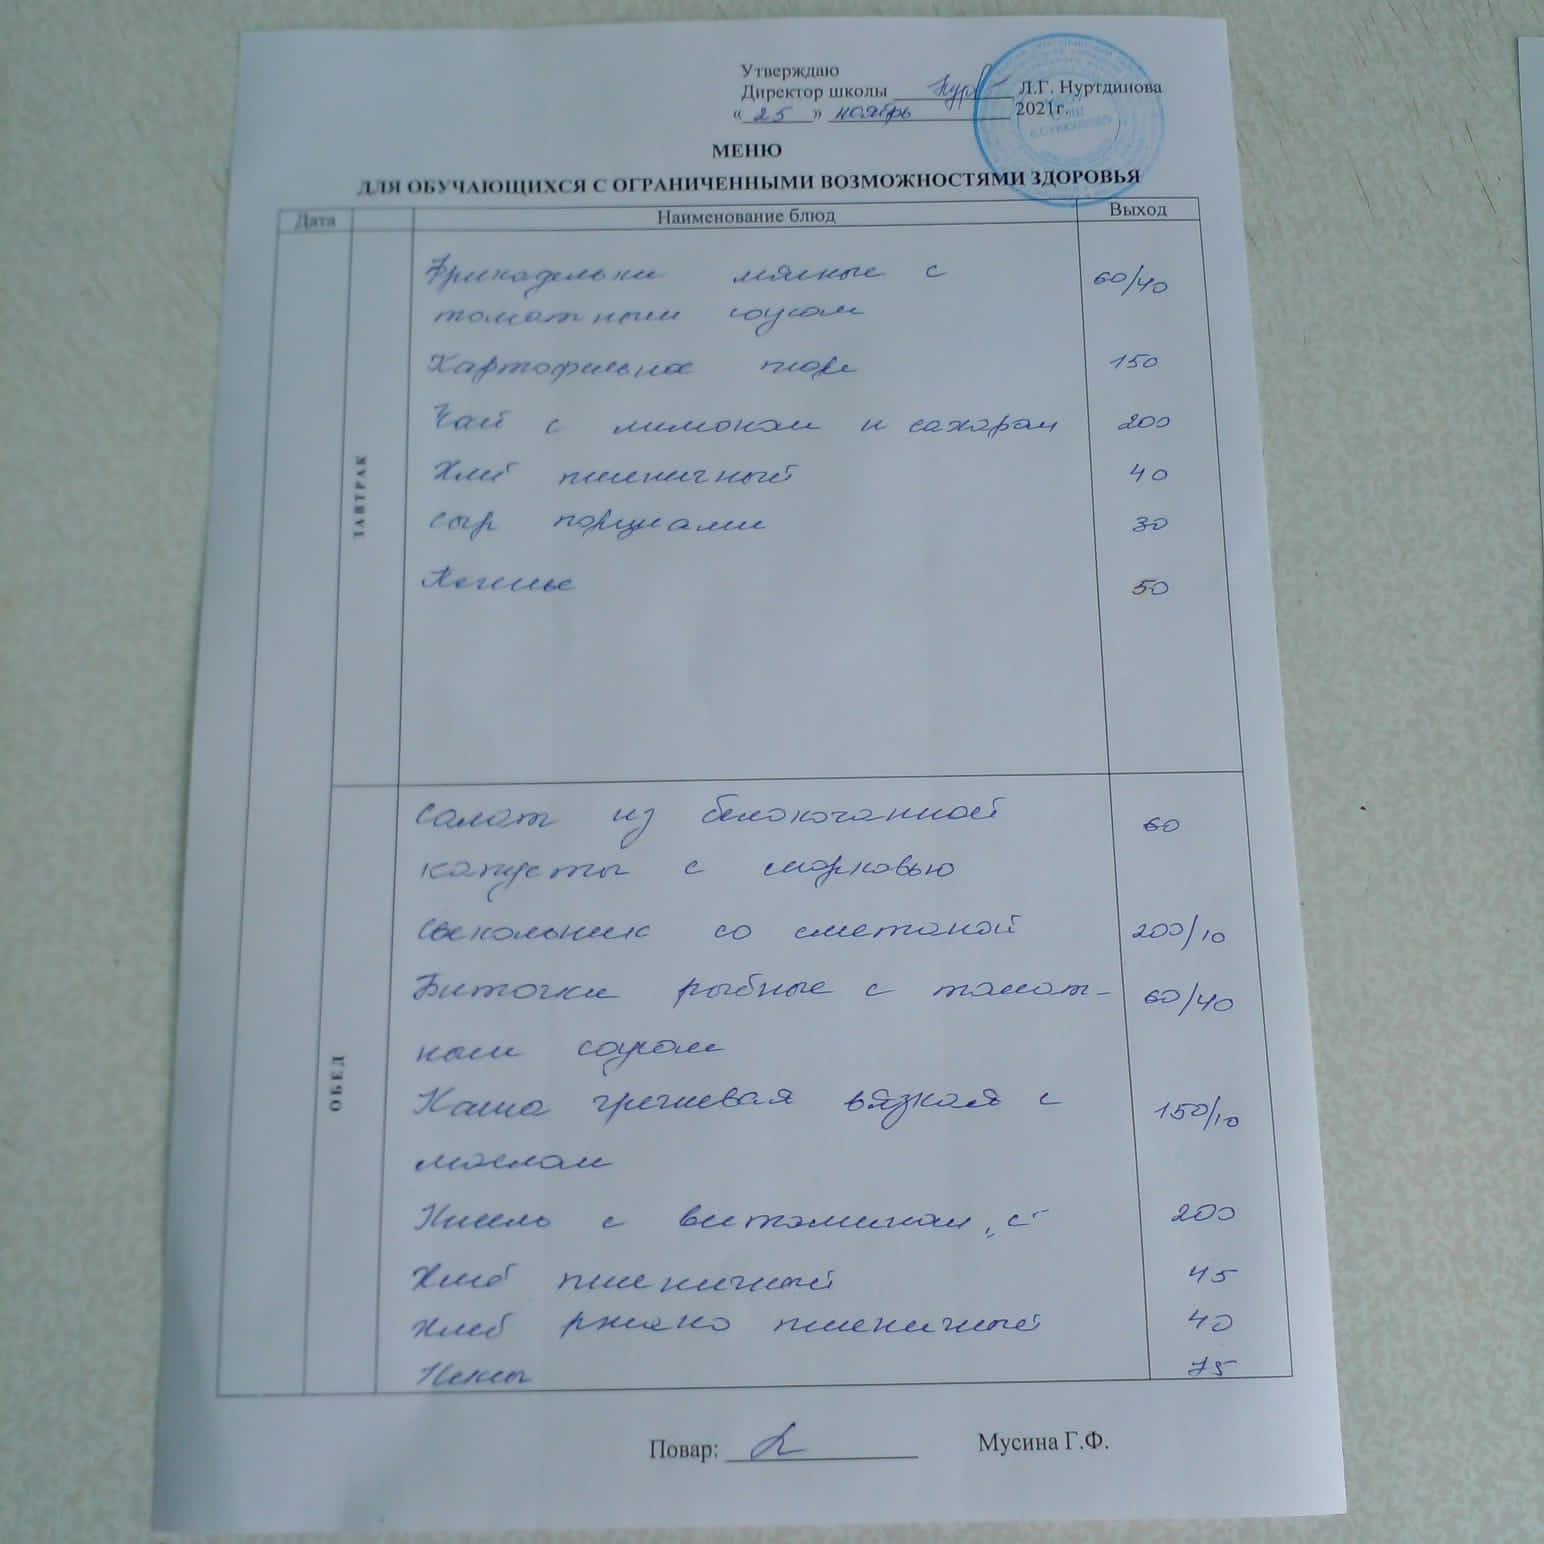 Утверждаю
Директор школы Л.Г. Нуртдинова
« 25 » ноябрь 2021г.
МЕНЮ
ДЛЯ ОБУЧАЮЩИХСЯ С ОГРАНИЧЕННЫМИ ВОЗМОЖНОСТЯМИ ЗДОРОВЬЯ
Дата Наименование блюд Выход
ЗАВТРАК
Фрикадельки мясные с 60/40
томатным соусом
Картофельное пюре 150
Чай с лимоном и сахаром 200
Хлеб пшеничный 40
Сыр порциями 30
Печенье 50
ОБЕД
Салат из белокочанной 60
капусты с морковью
Свекольник со сметаной 200/10
Биточки рыбные с томат- 60/40
ным соусом
Каша гречневая вязкая с 150/10
маслом
Кисель с витамином „С" 200
Хлеб пшеничный 45
Хлеб ржано пшеничный 40
Кексы 75
Повар: Мусина Г.Ф.